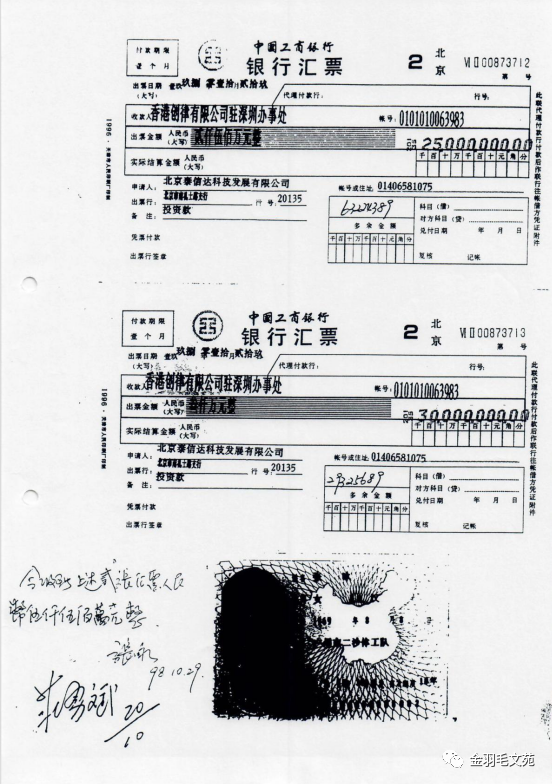 付款期限
壹个月
中国工商银行
银行汇票
2
北京
VIII00873712
第 号
出票日期 壹玖玖捌 零壹拾月贰拾玖
(大写)
代理付款行: 行号:
收款人 香港创律有限公司驻深圳办事处
帐号: 0101010063983
出票金额 人民币 贰仟伍佰万元整
(大写)
25000000000
实际结算金额 人民币
(大写)
千百十万千百十元角分
申请人: 北京泰信达科技发展有限公司
帐号或住址: 01406581075
出票行: 行号: 20135
备注: 投资款
多余金额
千百十万千百十元角分
科目(借)
对方科目(贷)
兑付日期 年 月 日
复核 记帐
凭票付款
出票行签章
此联代理付款行付款后作联行往帐借方凭证附件
1996·天津市人民印刷厂印制
付款期限
壹个月
中国工商银行
银行汇票
2
北京
VIII00873713
第 号
出票日期 壹玖玖捌 零壹拾月贰拾玖
(大写)
代理付款行: 行号:
收款人 香港创律有限公司驻深圳办事处
帐号: 0101010063983
出票金额 人民币 叁仟万元整
(大写)
30000000000
实际结算金额 人民币
(大写)
千百十万千百十元角分
申请人: 北京泰信达科技发展有限公司
帐号或住址: 01406581075
出票行: 行号: 20135
备注: 投资款
29325689
多余金额
千百十万千百十元角分
科目(借)
对方科目(贷)
兑付日期 年 月 日
复核 记帐
凭票付款
出票行签章
此联代理付款行付款后作联行往帐借方凭证附件
1996·天津市人民印刷厂印制
今收到上述贰张汇票人民
币伍仟伍佰萬元整
98.10.29.
20/10
1969 年 8 月 8 日
二沙体工队
金羽毛文苑